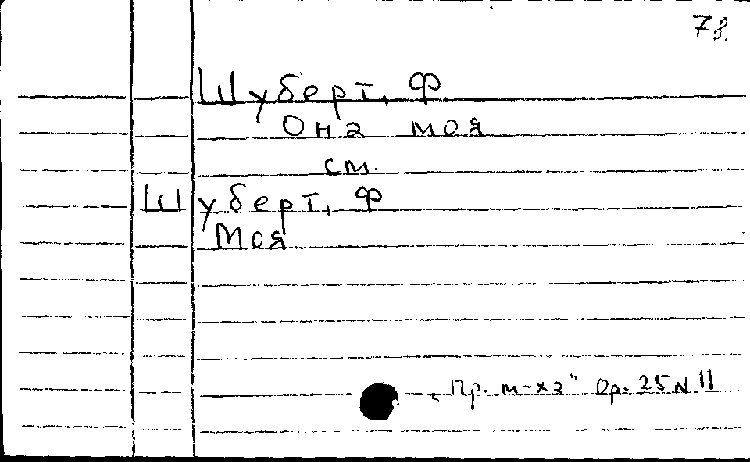 78.
Шуберт, Ф
Она моя
см.
Шуберт, Ф
Моя
„Пр. м-ха" Op. 25 N 11